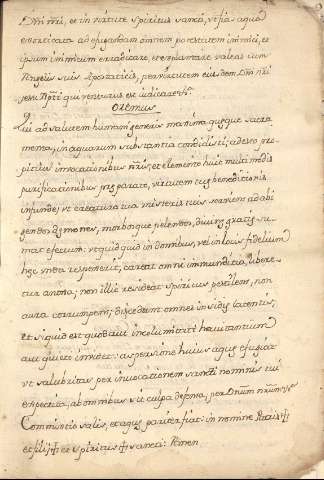 Dñi nr̃i, et in virtute spiritus sancti, ut fias aqua
exorcizata ad effugandam omnem potestatem inimici, et
ipsum inimicum eradicare, et explantare valeas cum
Angelis suis Apostaticis, per virtutem eiusdem Dñi nr̃i
Jesu xp̃ti qui venturus est iudicare &c.ª
Oremus
Deus qui ad salutem humani generis maxima quæque sacra
menta, in aquarum substantia condidisti; adesto pro-
pitius invocationibus nr̃is, et elemento huic multimodis
purificationibus præparato, virtutem tuæ benedictionis
infunde; ut creatura tua mysterijs tuis serviens ad abi
gendos dæmones, morbosque pelendos, divinæ gratiæ su-
mat effectum: ut quidquid in domibus, vel in locis fidelium
hæc unda resperserit, careat omni immunditia, libere-
tur a noxa; non illic resideat spiritus pestilens, non
aura corrumpens; discedant omnes insidiæ latentis
et siquid est quod aut incolumitati havitantium
aut quieti invidet: aspersione huius aquæ efugiat
ut salubritas per invocationem sancti nominis tui
expectita, ab omnibus sit impugnationibus defensa, per Dnũm nr̃um &c
Commixtio salis, et aquæ pariter fiat: in nomine Patris ✠
et filij ✠ et spiritus ✠ sancti: Amen